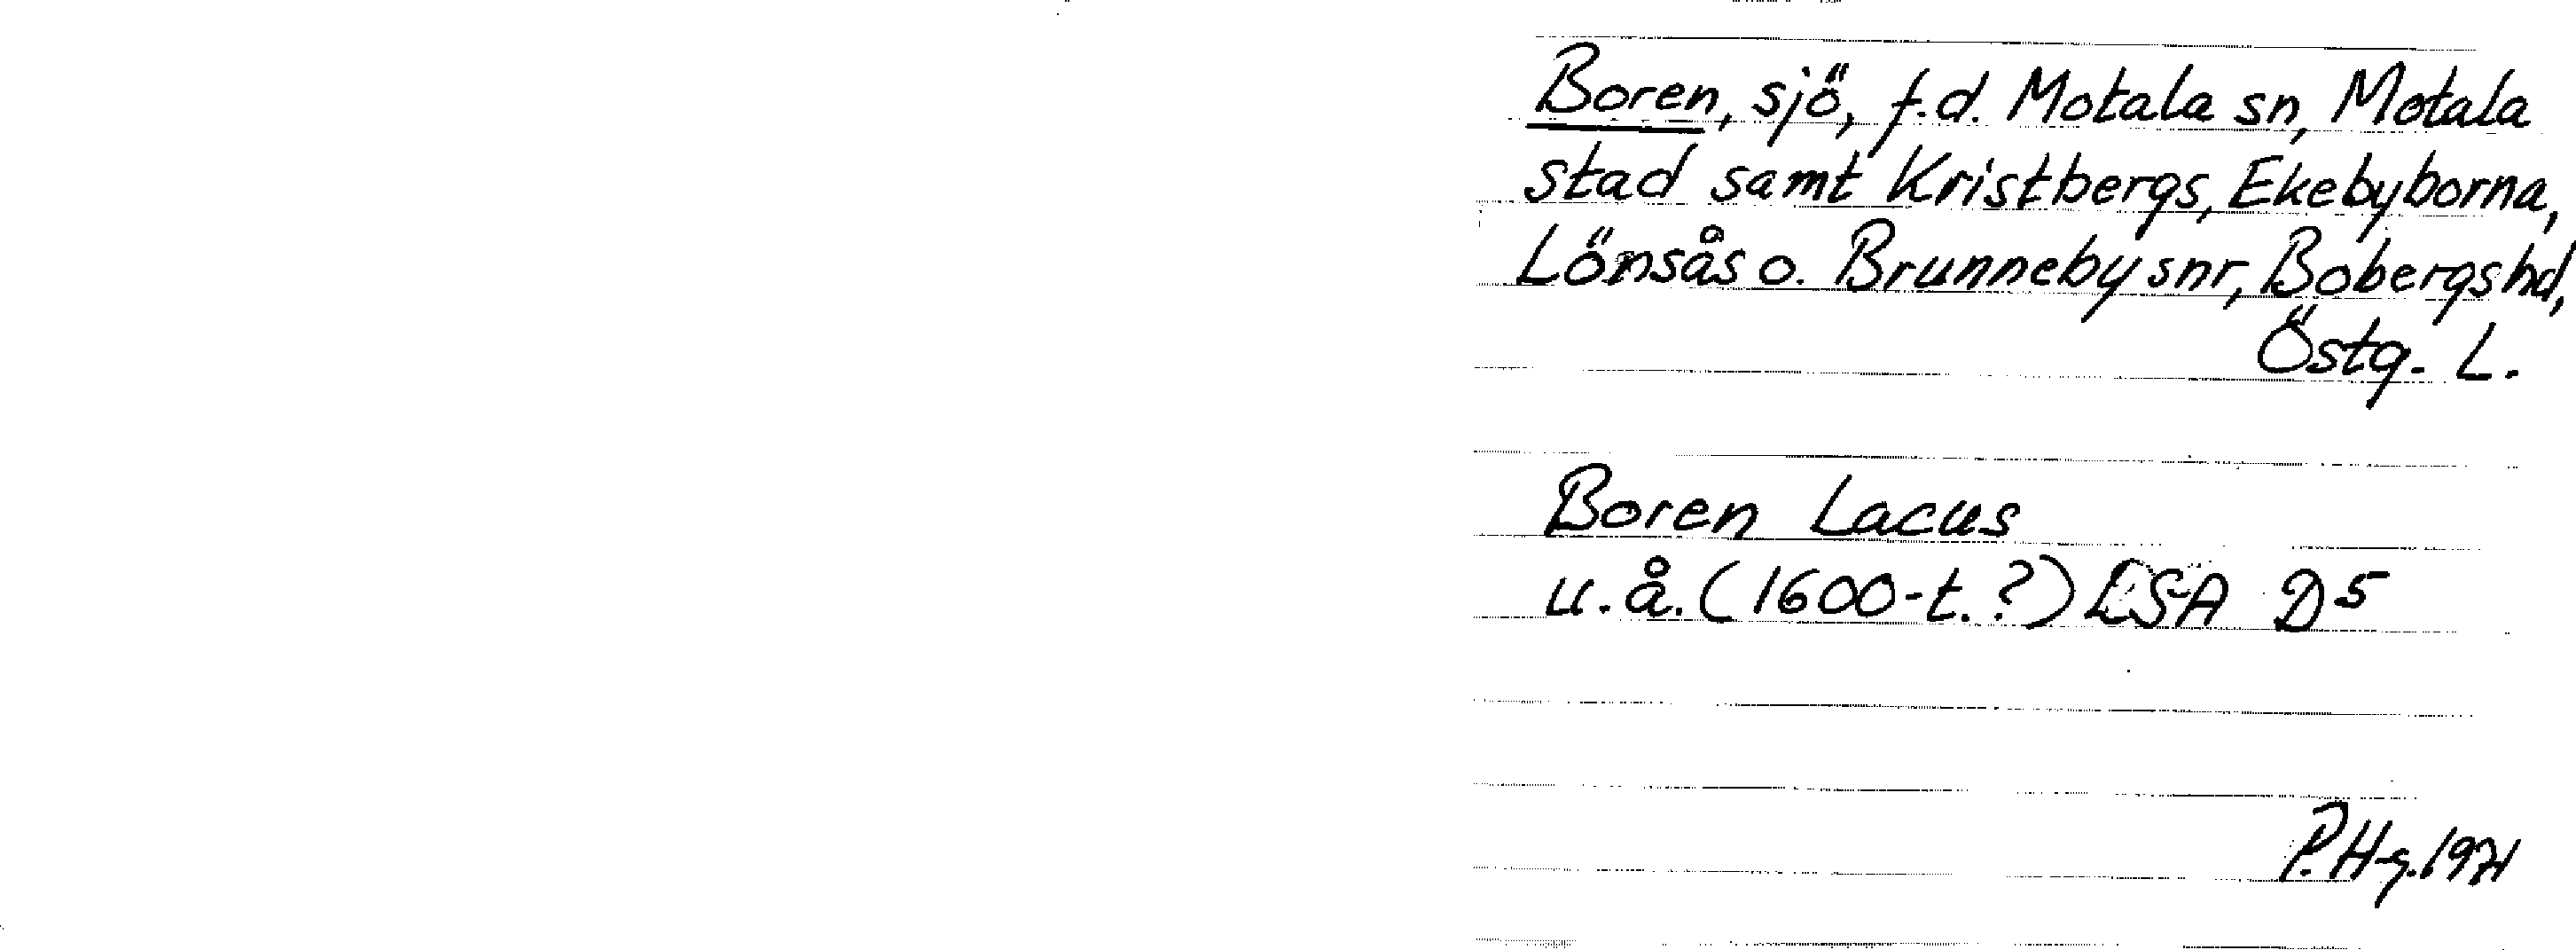 Boren, sjö, f.d. Motala sn, Motala
stad samt Kristbergs, Ekebyborna,
Lönsås o. Brunneby snr, Bobergs hd,
Östg. L.
Boren Lacus
u.å. (1600-t.?) LSA D5
P. H-g. 1971